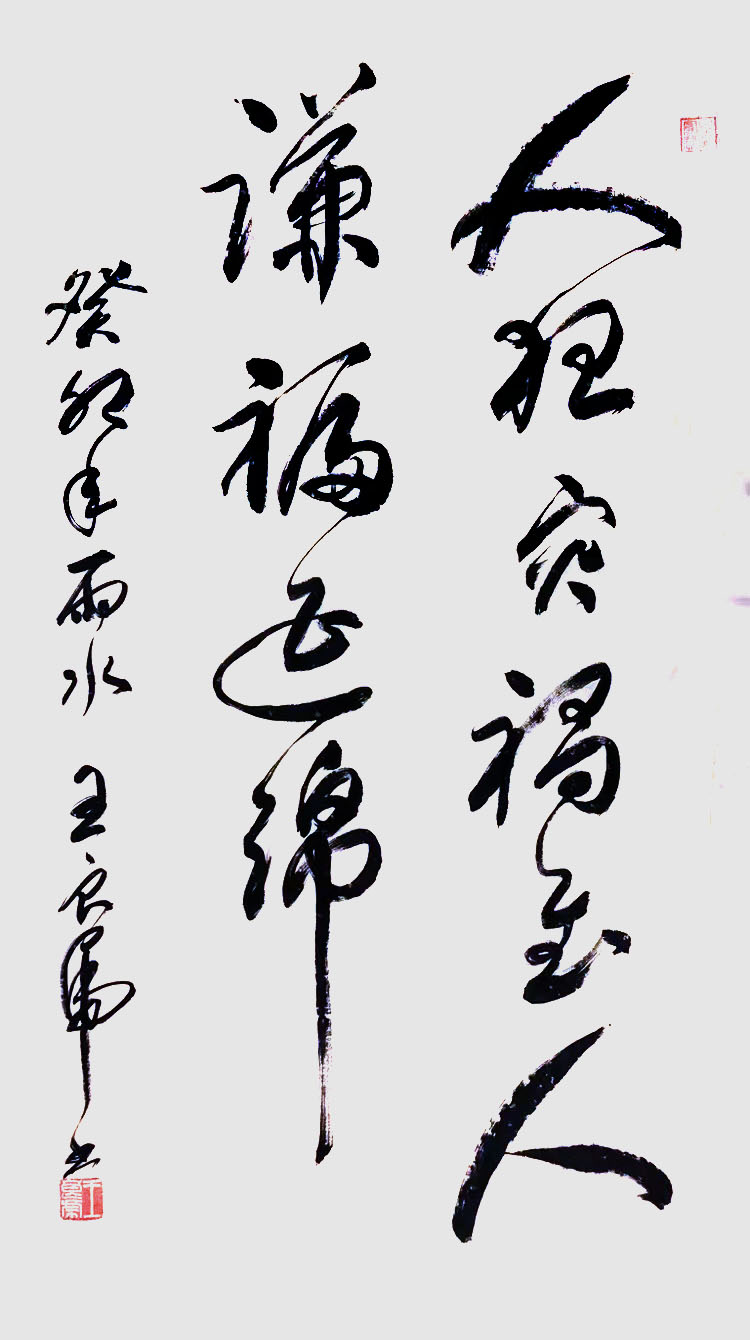 人狂灾祸至人
谦福延绵
癸卯年雨水 王良虎书